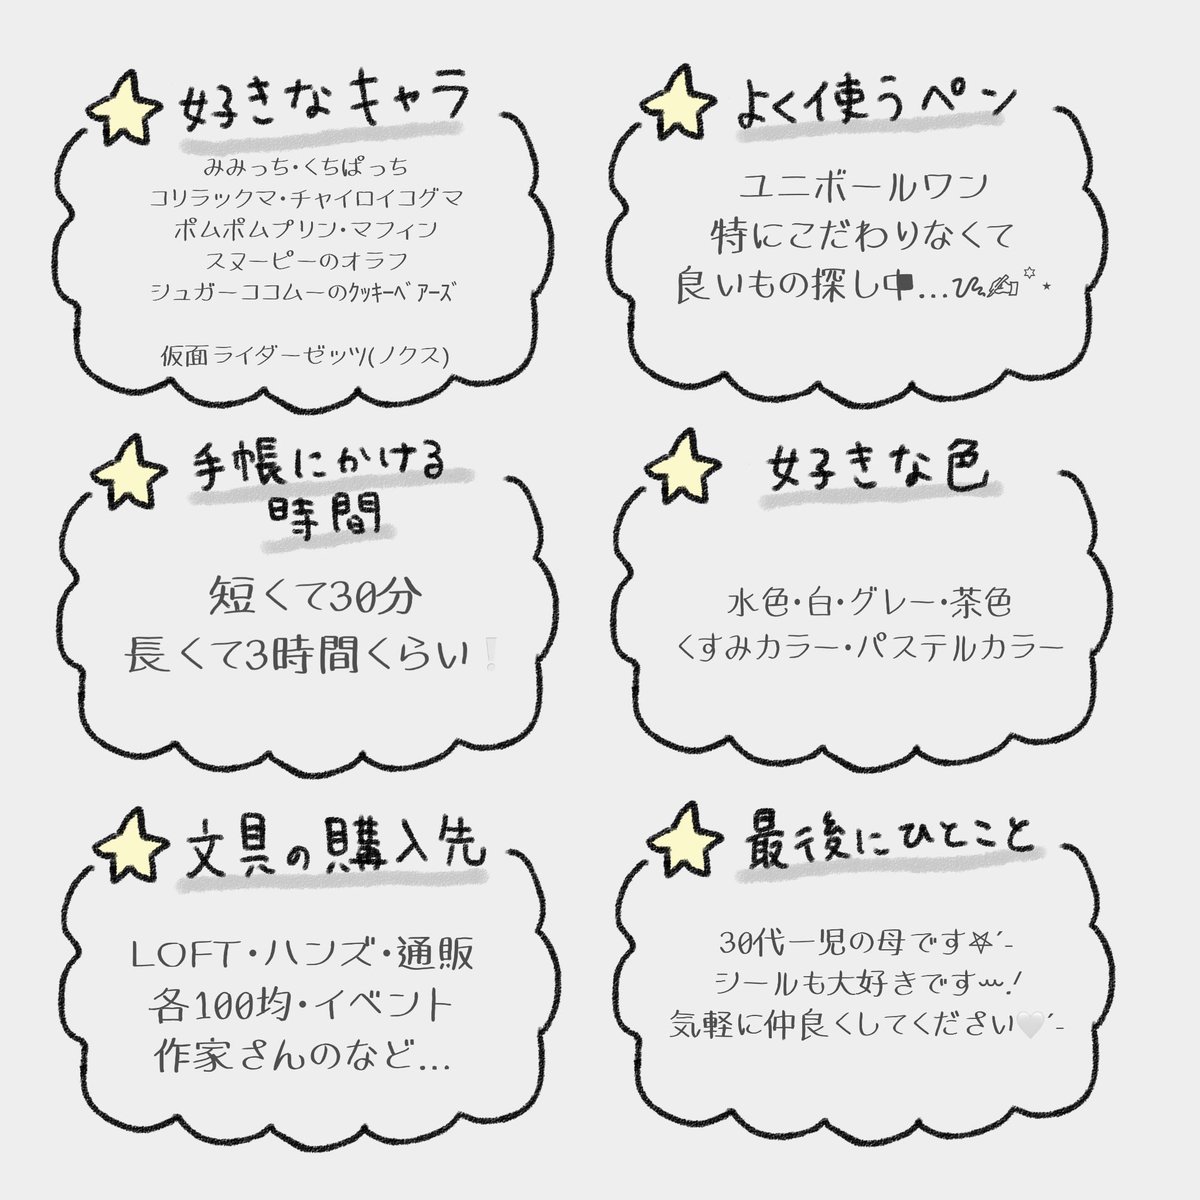 好きなキャラ
みみっち・くちぱっち
コリラックマ・チャイロイコグマ
ポムポムプリン・マフィン
スヌーピーのオラフ
シュガーココムーのｸｯｷｰﾍﾞｱｰｽﾞ
仮面ライダーゼッツ(ノクス)
よく使うペン
ユニボールワン
特にこだわりなくて
良いもの探し中...
手帳にかける
時間
短くて30分
長くて3時間くらい❕
好きな色
水色・白・グレー・茶色
くすみカラー・パステルカラー
文具の購入先
LOFT・ハンズ・通販
各100均・イベント
作家さんのなど...
最後にひとこと
30代一児の母です⛧´-
シールも大好きです𖥧!
気軽に仲良くしてください🤍´-